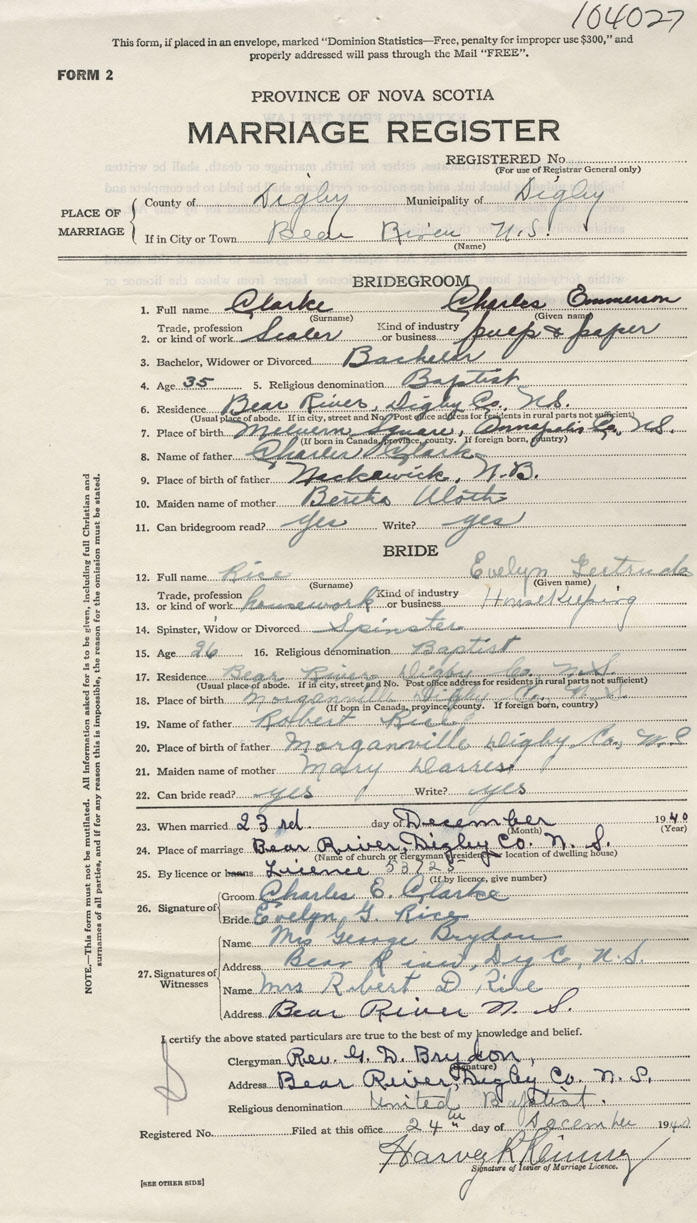 104027
This form, if placed in an envelope, marked "Dominion Statistics—Free, penalty for improper use $300," and
properly addressed will pass through the Mail "FREE".
FORM 2
PROVINCE OF NOVA SCOTIA
MARRIAGE REGISTER
REGISTERED No.
(For use of Registrar General only)
PLACE OF MARRIAGE
County of Digby Municipality of Digby
If in City or Town Bear River N.S.
(Name)
BRIDEGROOM
1. Full name Clarke Charles Emmerson
(Surname) (Given name)
2. Trade, profession or kind of work Scaler Kind of industry or business pulp & paper
3. Bachelor, Widower or Divorced Bachelor
4. Age 35 5. Religious denomination Baptist
6. Residence Bear River, Digby Co. N.S.
(Usual place of abode. If in city, street and No. Post office address for residents in rural parts not sufficient)
7. Place of birth Melvern Square, Annapolis Co., N.S.
(If born in Canada, province, county. If foreign born, country)
8. Name of father Charles Clark
9. Place of birth of father Nackawick, N.B.
10. Maiden name of mother Bertha
11. Can bridegroom read? yes Write? yes
BRIDE
12. Full name Rice Evelyn Gertrude
(Surname) (Given name)
13. Trade, profession or kind of work housework Kind of industry or business Housekeeping
14. Spinster, Widow or Divorced Spinster
15. Age 26 16. Religious denomination Baptist
17. Residence Bear River Digby Co. N.S.
(Usual place of abode. If in city, street and No. Post office address for residents in rural parts not sufficient)
18. Place of birth Morganville Digby Co. N.S.
(If born in Canada, province, county. If foreign born, country)
19. Name of father Robert Rice
20. Place of birth of father Morganville Digby Co., N.S
21. Maiden name of mother Mary
22. Can bride read? yes Write? yes
23. When married 23rd day of December 1940
(Month) (Year)
24. Place of marriage Bear River, Digby Co. N.S.
(Name of church or clergyman's residence or location of dwelling house)
25. By licence or banns Licence 53725
(If by licence, give number)
26. Signature of
Groom Charles E. Clarke
Bride Evelyn G. Rice
27. Signatures of Witnesses
Name Mrs George Brydon
Address Bear River, Dig Co, N.S.
Name Mrs Robert D Rice
Address Bear River N.S.
I certify the above stated particulars are true to the best of my knowledge and belief.
Clergyman Rev. G. D. Brydon,
(Signature)
Address Bear River, Digby Co. N.S.
Religious denomination United Baptist.
Registered No. Filed at this office 24th day of December 1940
Harvey R
Signature of Issuer of Marriage Licence.
[SEE OTHER SIDE]
NOTE.—This form must not be mutilated. All information asked for is to be given, including full Christian and
surnames of all parties, and if for any reason this is impossible, the reason for the omission must be stated.